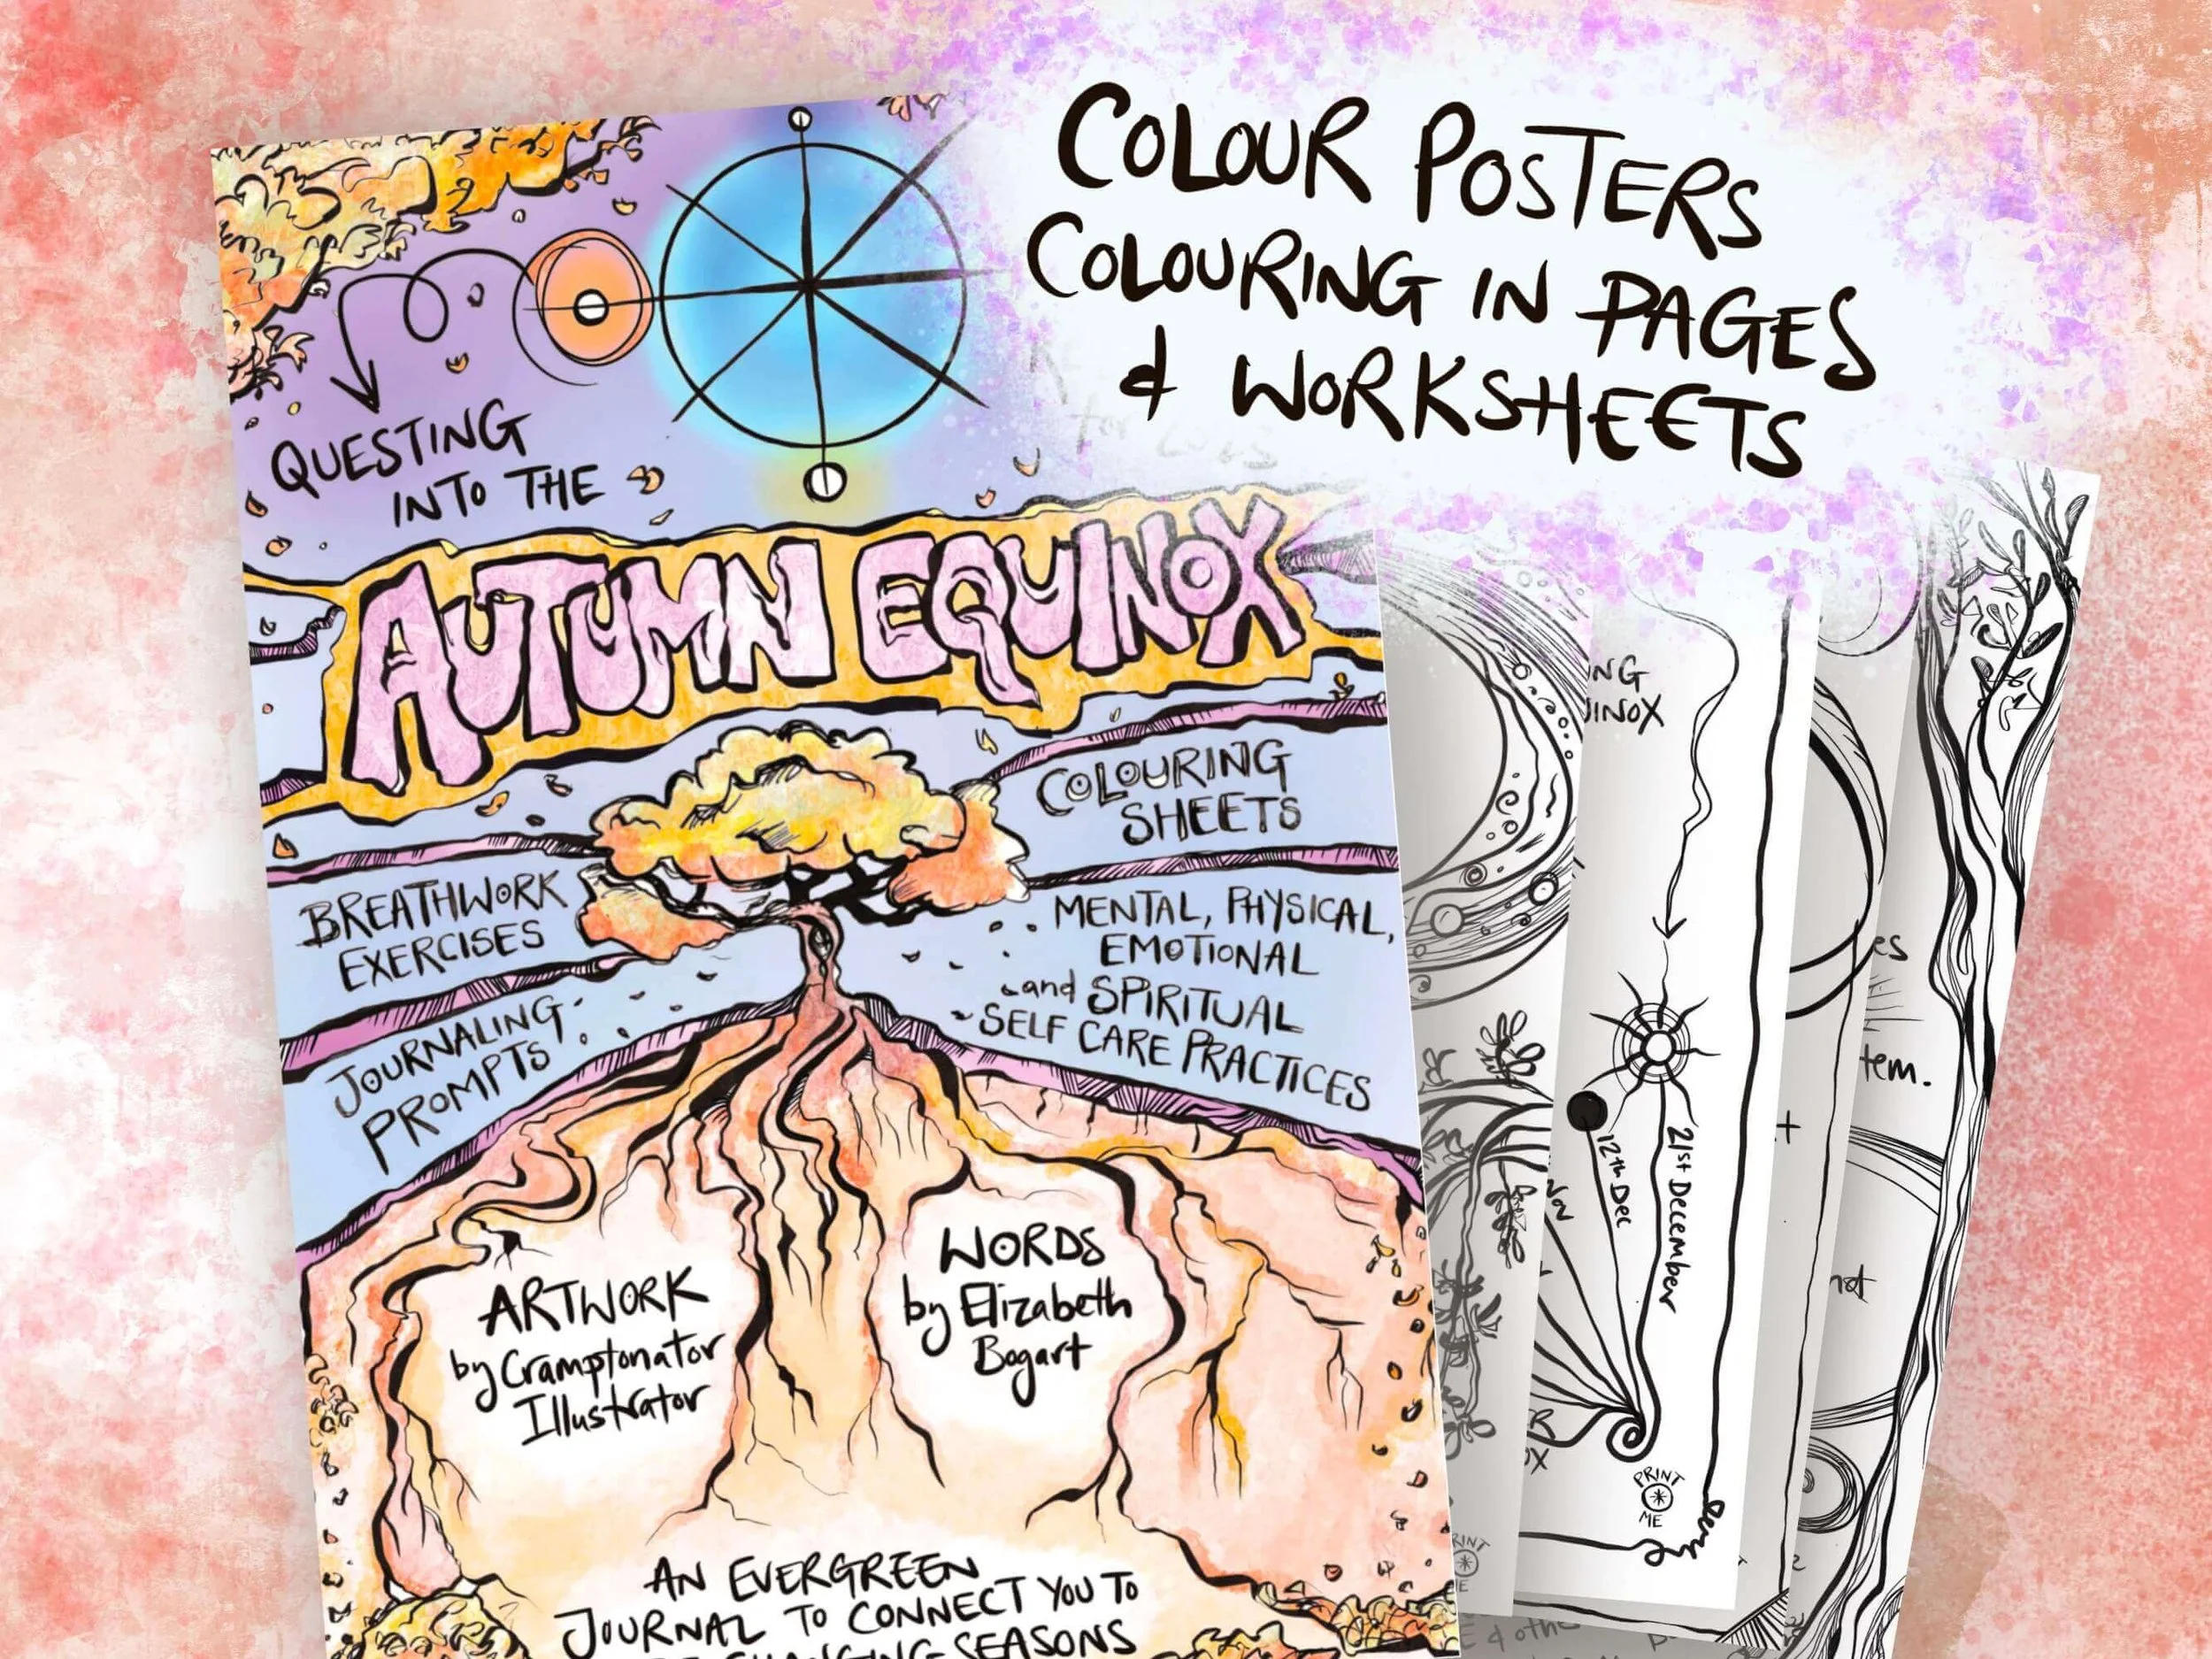 COLOUR POSTERS
COLOURING IN PAGES
& WORKSHEETS
QUESTING
INTO THE
AUTUMN EQUINOX
COLOURING
SHEETS
BREATHWORK
EXERCISES
MENTAL, PHYSICAL,
EMOTIONAL
and SPIRITUAL
SELF CARE PRACTICES
JOURNALING
PROMPTS
ARTWORK
by Cramptonator
Illustrator
WORDS
by Elizabeth
Bogart
AN EVERGREEN
JOURNAL TO CONNECT YOU TO
CHANGING SEASONS
NG
UINOX
12th Dec
21st December
Nov
PRINT
ME
es
tem.